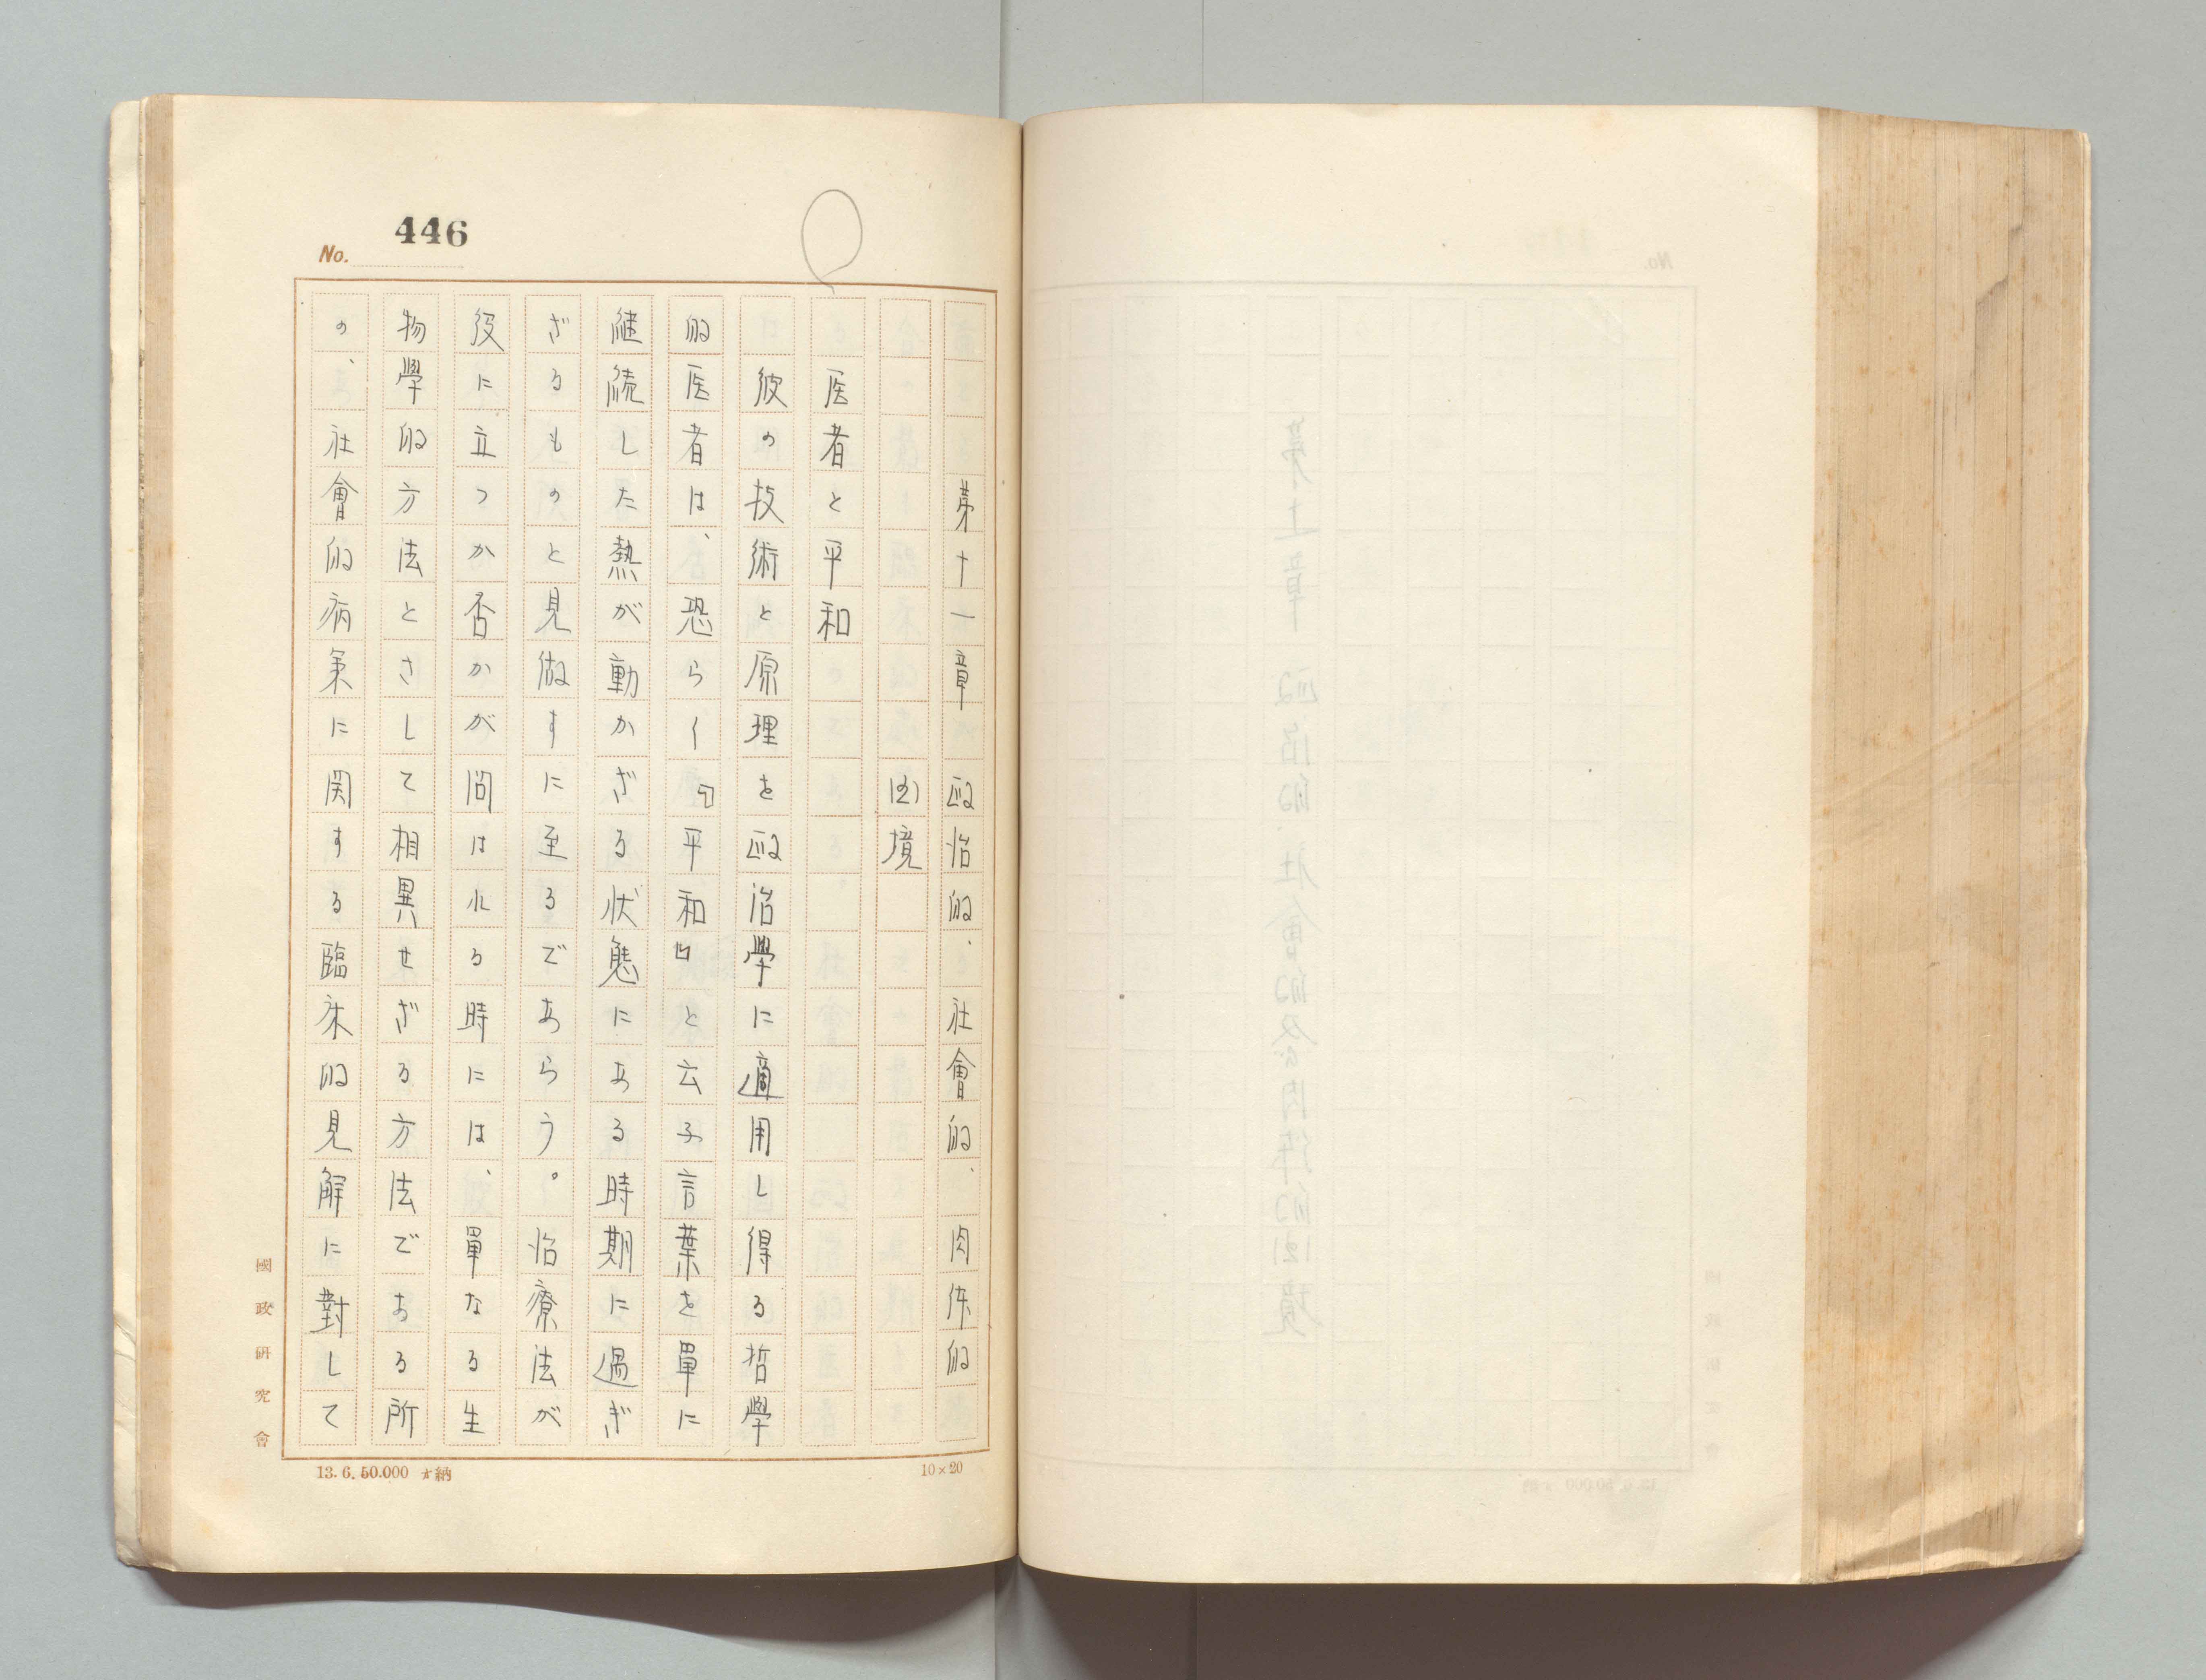 446
No.
第十一章　政治的、社會的、肉体的
囚境
医者と平和
彼の技術と原理を政治學に適用し得る哲學
的医者は、恐らく『平和』と云ふ言葉を單に
継続した熱が動かざる状態にある時期に過ぎ
ざるものと見做すに至るであらう。治療法が
役に立つか否かが問はれる時には、單なる生
物學的方法とさして相異せざる方法である所
の、社會的病気に関する臨床的見解に對して
國政研究會
13. 6. 50.000 納
10×20